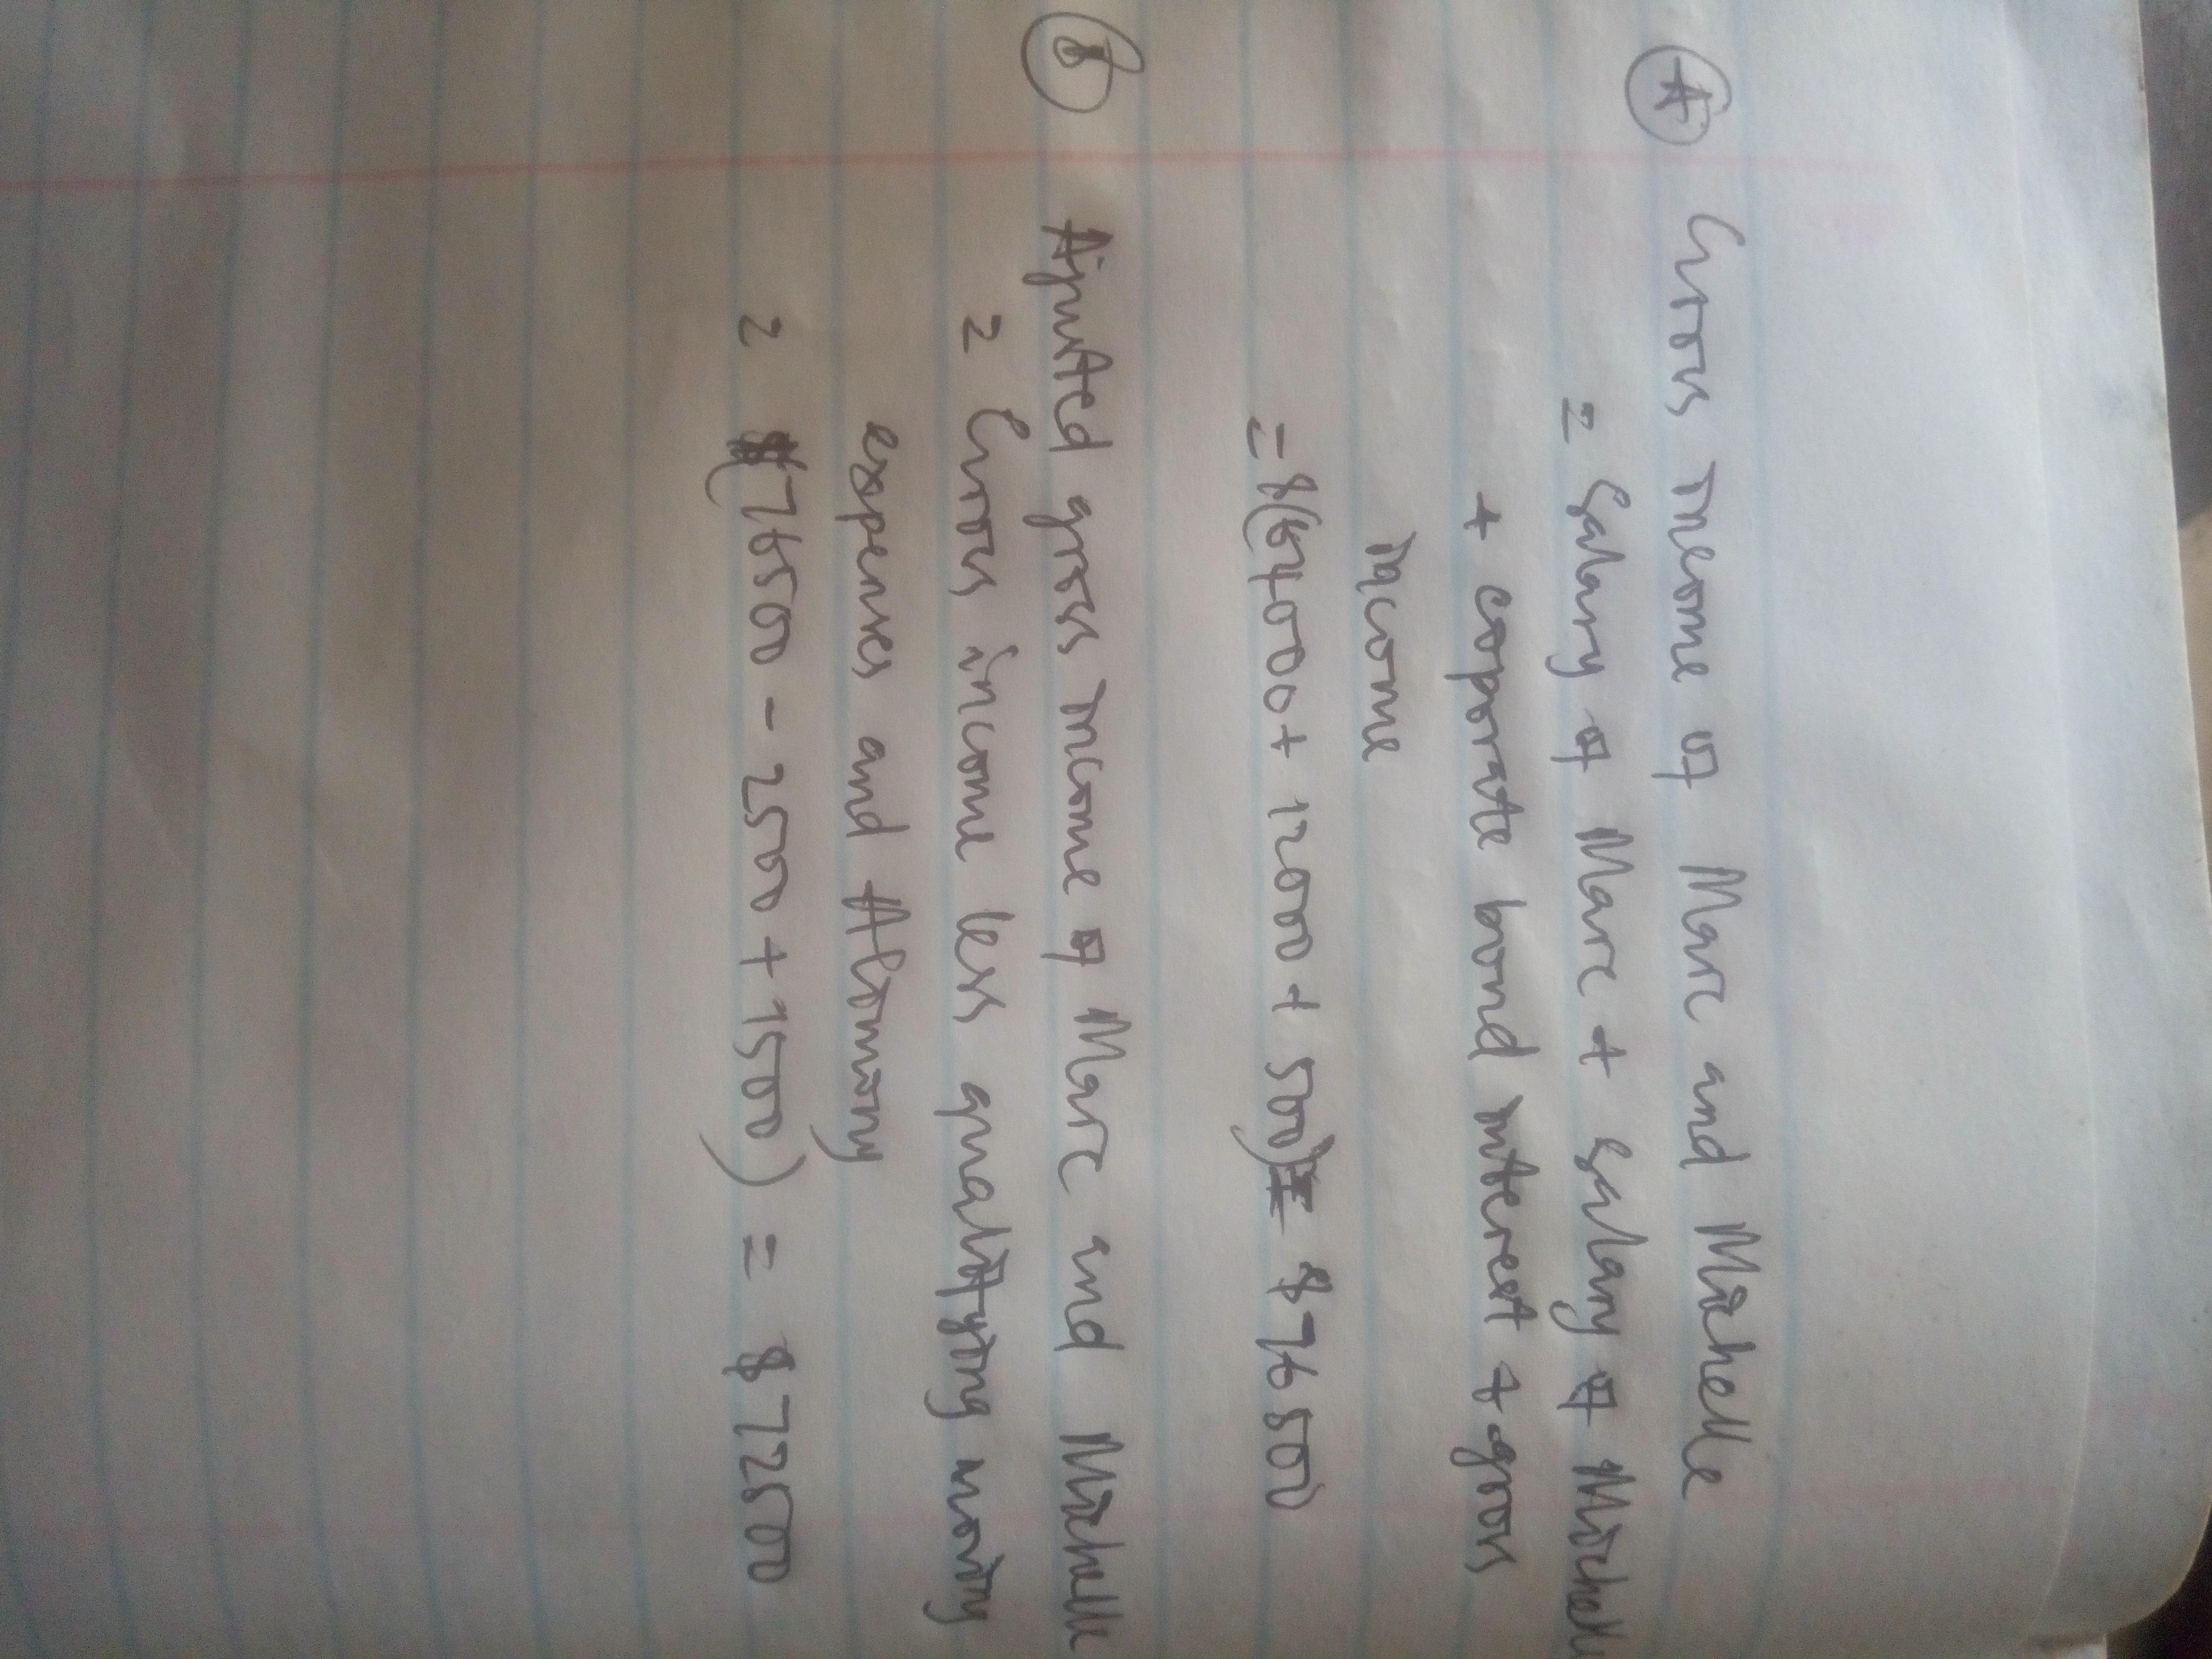 A Gross income of Marc and Michelle
= Salary of Marc + Salary of Michelle
+ coporate bond interest + gross
income
= $(64000 + 12000 + 500) = $76500
B Ajusted gross income of Marc and Michelle
= Gross income less qualifying moving
expenses and Alimony
= $(76500 - 2500 + 1500) = $72500